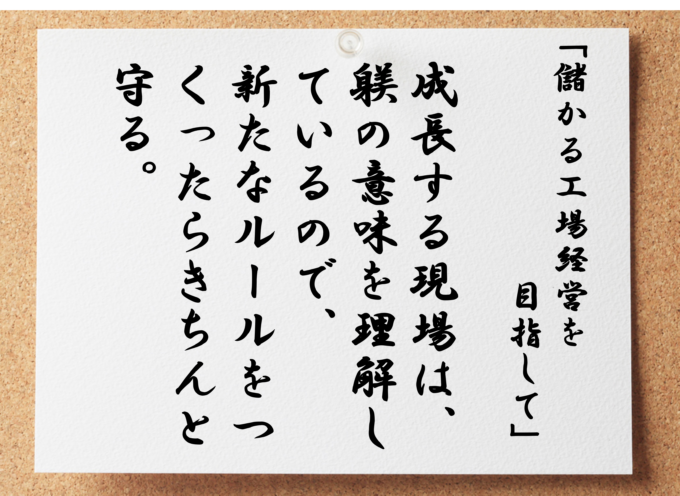 「儲かる工場経営を
目指して」
成長する現場は、
躾の意味を理解し
ているので、
新たなルールをつ
くったらきちんと
守る。